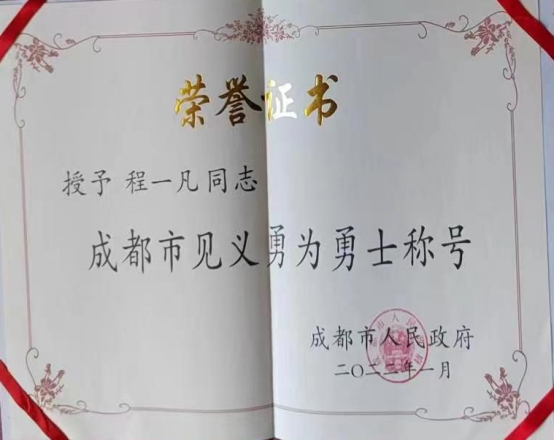 荣誉证书
授予 程一凡同志
成都市见义勇为勇士称号
成都市人民政府
二〇二二年一月